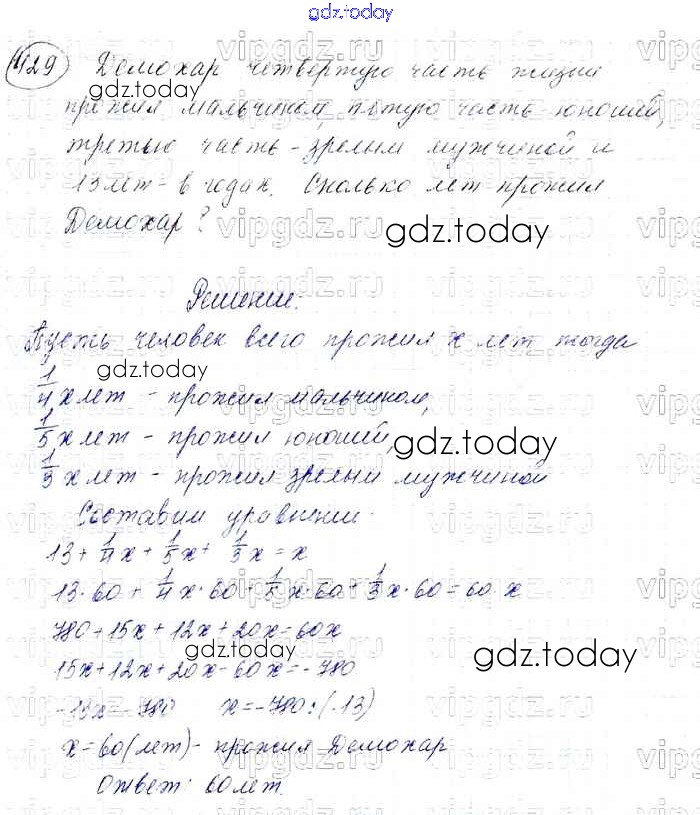 gdz.today
1129 Демохар четвертую часть жизни
прожил мальчиком, пятую часть юношей,
третью часть - зрелым мужчиной и
13 лет - в годах. Сколько лет прожил
Демохар?
Решение:
Пусть человек всего прожил x лет тогда
1/4 x лет - прожил мальчиком,
1/5 x лет - прожил юношей,
1/3 x лет - прожил зрелым мужчиной
Составим уравнение.
13 + 1/4 x + 1/5 x + 1/3 x = x
13·60 + 1/4 x·60 + 1/5 x·60 + 1/3 x·60 = 60·x
780 + 15x + 12x + 20x = 60x
15x + 12x + 20x - 60x = -780
-13x = -780 x = -780 : (-13)
x = 60 (лет) - прожил Демохар
Ответ: 60 лет.
gdz.today
gdz.today
gdz.today
gdz.today
gdz.today
gdz.today
vipgdz.ru